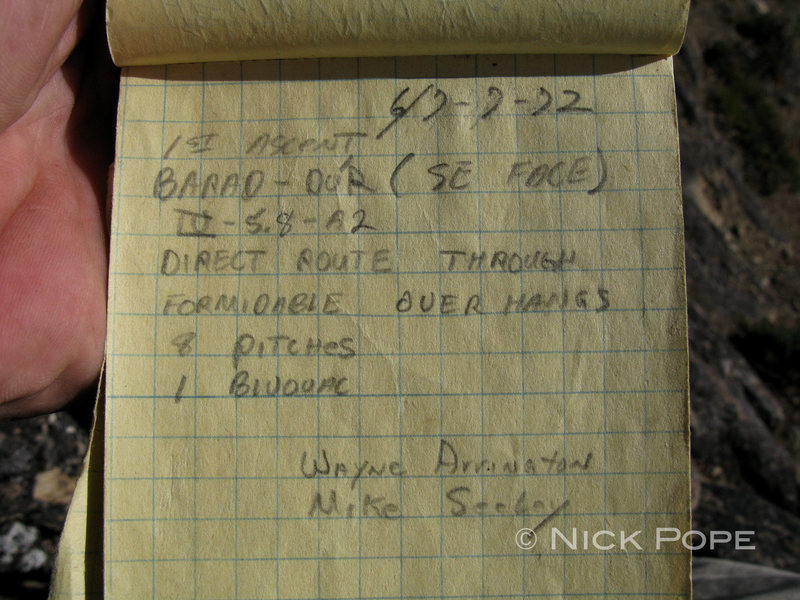 6/7-7-72
1ST ASCENT
BARAD-DÛR (SE FACE)
IV-5.8-A2
DIRECT ROUTE THROUGH
FORMIDABLE OVER HANGS
8 PITCHES
1 BIVOUAC
Wayne Arrington
Mike Seeley
© NICK POPE